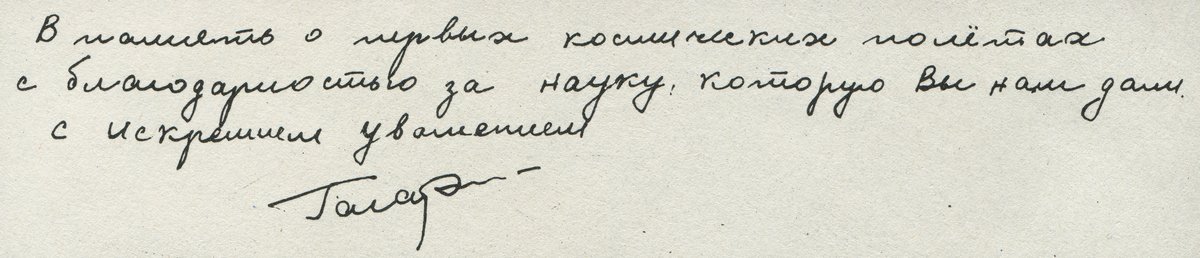 В память о первых космических полётах
с благодарностью за науку, которую Вы нам дали.
с искренним уважением
Гагарин